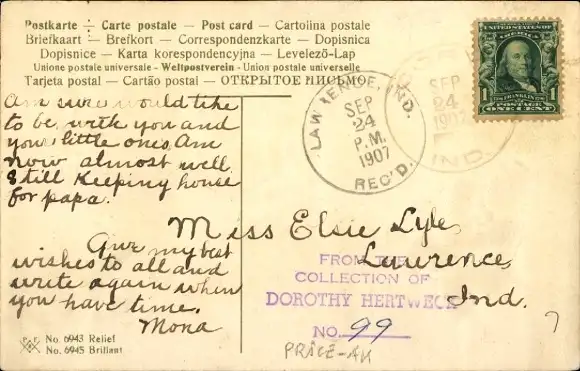 Postkarte — Carte postale — Post card — Cartolina postale
Briefkaart — Brefkort — Correspondenzkarte — Dopisnica
Dopisnice — Karta korespondencyjna — Levelező-Lap
Unione postale universale - Weltpostverein - Union postale universelle
Tarjeta postal — Cartão postal — ОТКРЫТОЕ ПИСЬМО.
Am sure would like
to be with you and
your little ones. Am
now almost well.
Still keeping house
for papa.
Give my best
wishes to all and
write again when
you have time.
Mona
No. 6943 Relief
No. 6945 Brillant
LAWRENCE, IND.
SEP
24
P.M.
1907
REC'D.
SEP
24
1907
IND.
POSTAGE
1
FRANKLIN
1
ONE CENT
Miss Elsie Lyle,
Lawrence,
Ind.
FROM THE
COLLECTION OF
DOROTHY HERTWECK
NO. 99
7